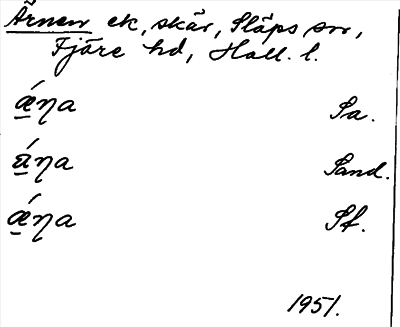 Ärnen ek, skär, Släps sn,
Fjäre hd, Hall. l.
ǽŋa Sa.
ǘŋa Sand.
ǽŋa Sf.
1951.